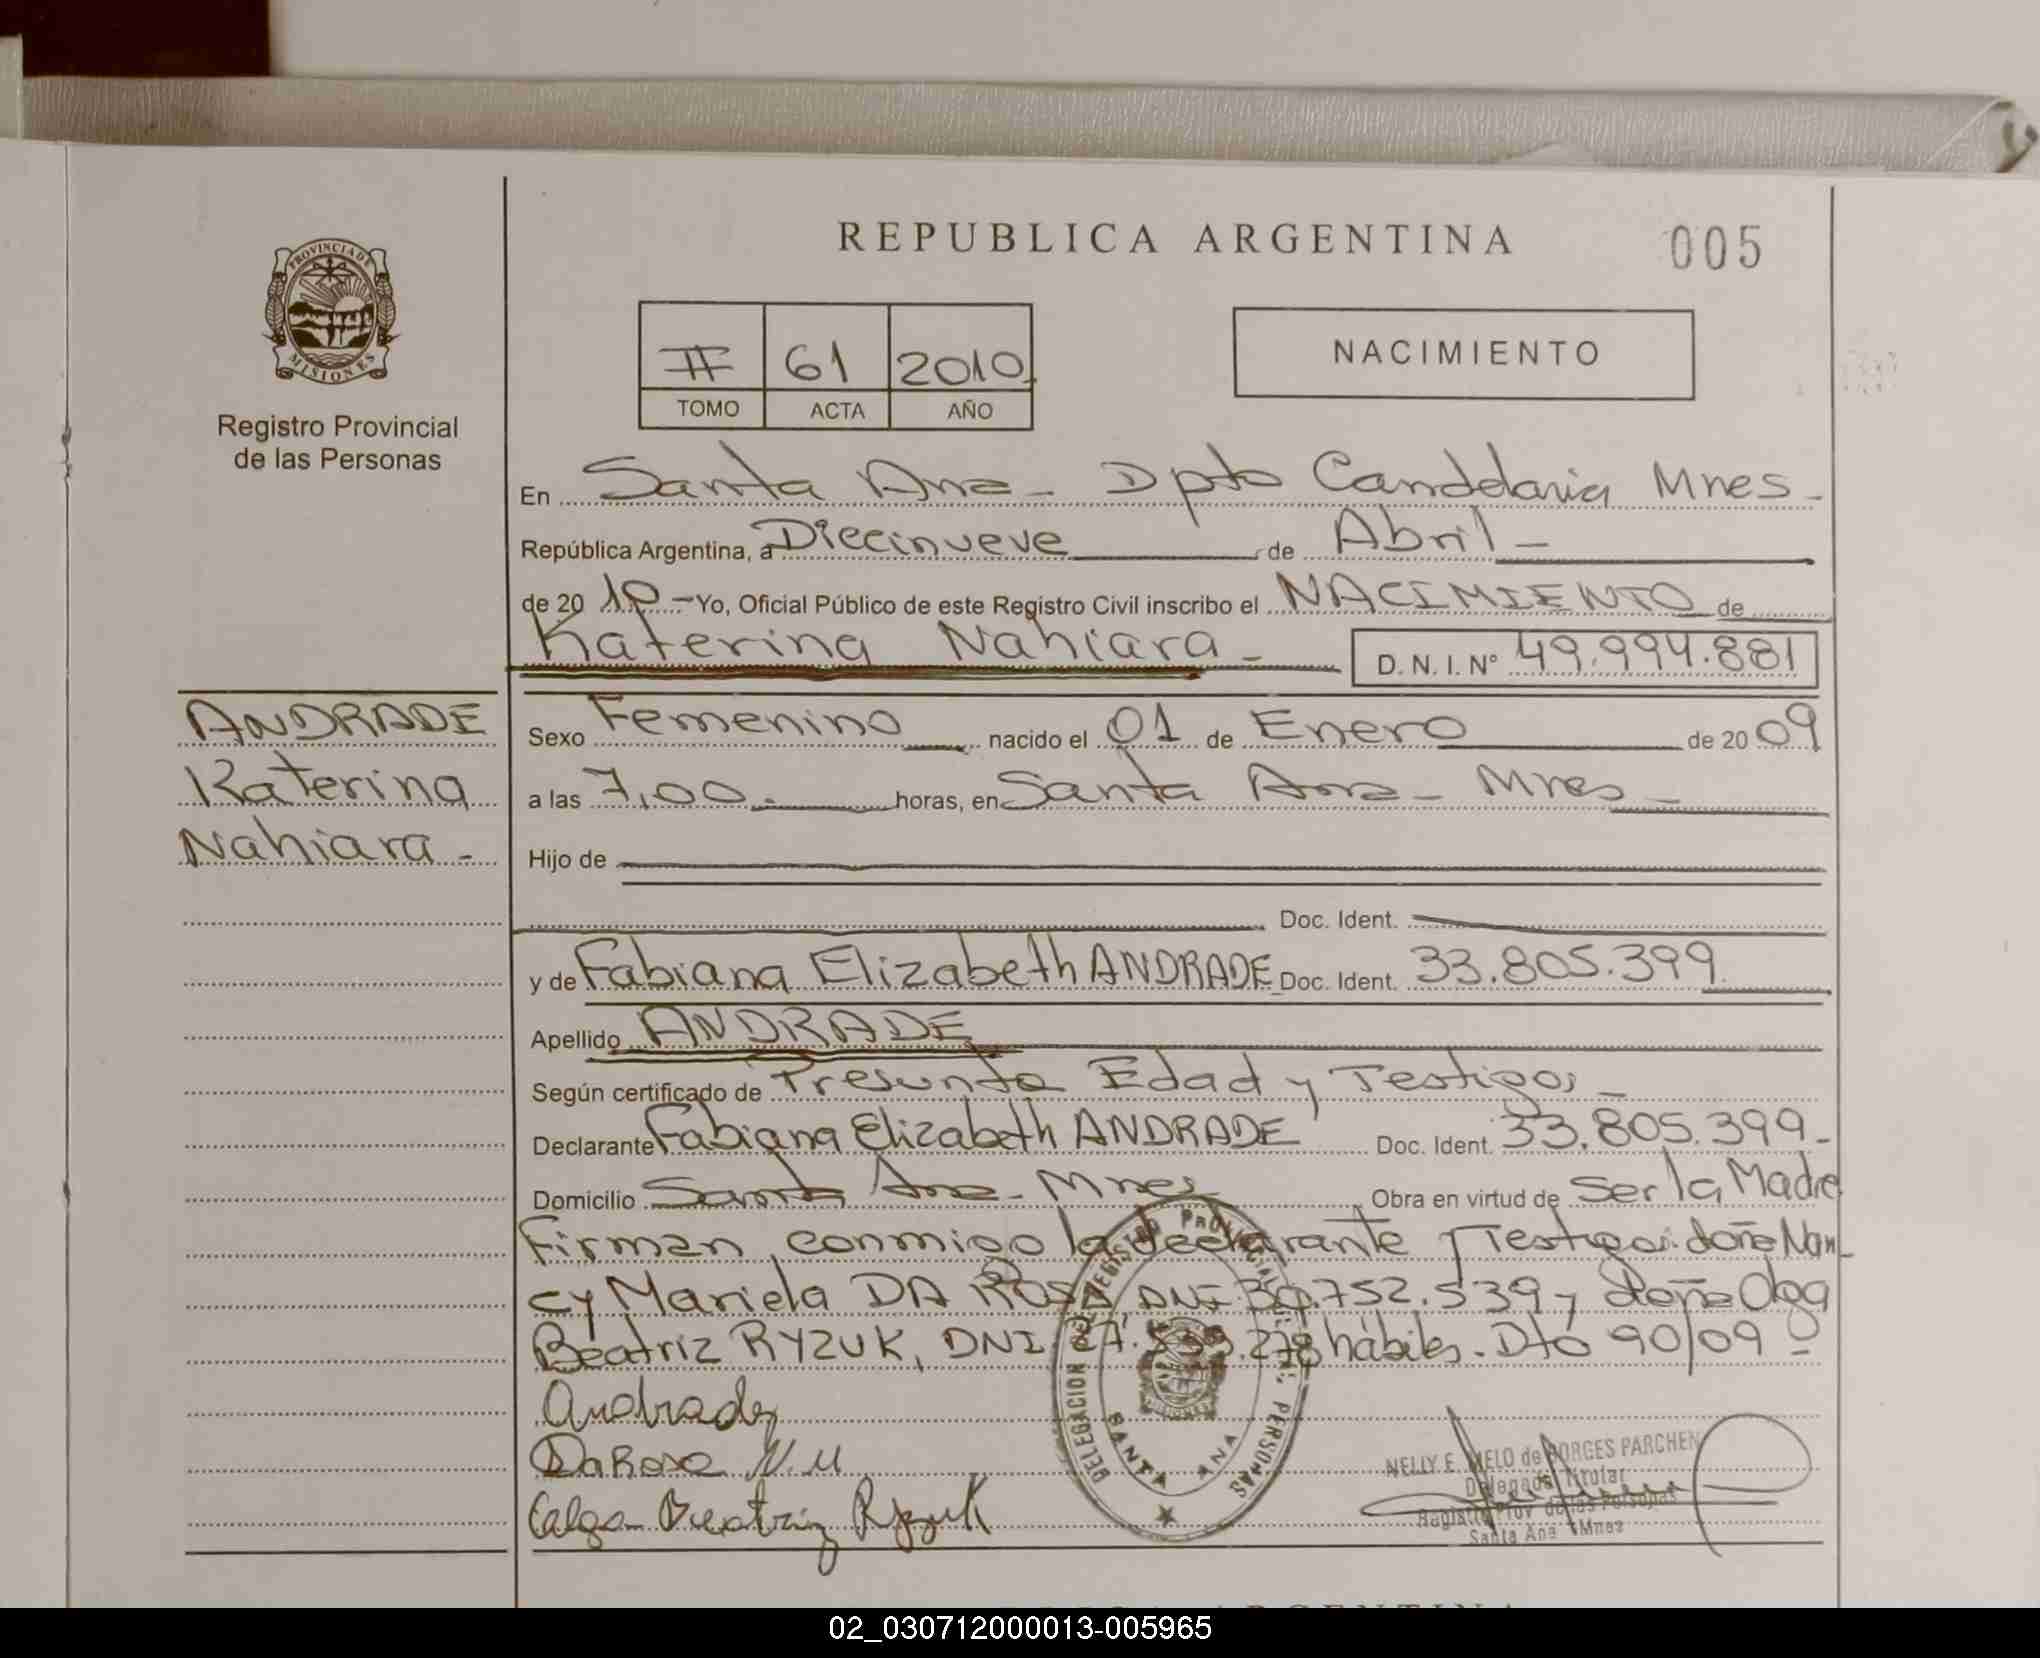 REPUBLICA ARGENTINA
005
PROVINCIA DE
MISIONES
Registro Provincial
de las Personas
II 61 2010
TOMO ACTA AÑO
NACIMIENTO
En Santa Ana - Dpto Candelaria Mnes -
República Argentina, a Diecinueve de Abril -
de 20 10 - Yo, Oficial Público de este Registro Civil inscribo el NACIMIENTO de
Katerina Nahiara - D. N. I. N° 49.994.881
ANDRADE
Katerina
Nahiara -
Sexo Femenino nacido el 01 de Enero de 20 09
a las 7,00 horas, en Santa Ana - Mnes -
Hijo de
Doc. Ident.
y de Fabiana Elizabeth ANDRADE Doc. Ident. 33.805.399
Apellido ANDRADE
Según certificado de Presunta Edad y Testigos -
Declarante Fabiana Elizabeth ANDRADE Doc. Ident. 33.805.399 -
Domicilio Santa Ana - Mnes Obra en virtud de Ser la Madre
Firman conmigo la declarante y Testigos: doña Nan
cy Mariela DA ROSA, DNI 30.752.539 y doña Olga
Beatriz RYZUK, DNI 278 hábiles. Dto 90/09
Andrade
DaRosa N. M
Olga Beatriz Ryzuk
DELEGACION DEL REGISTRO PROVINCIAL DE PERSONAS
SANTA ANA
NELLY E. MELO de BORGES PARCHEN
Delegada Titular
Registro Prov de las Personas
Santa Ana Mnes
02_030712000013-005965